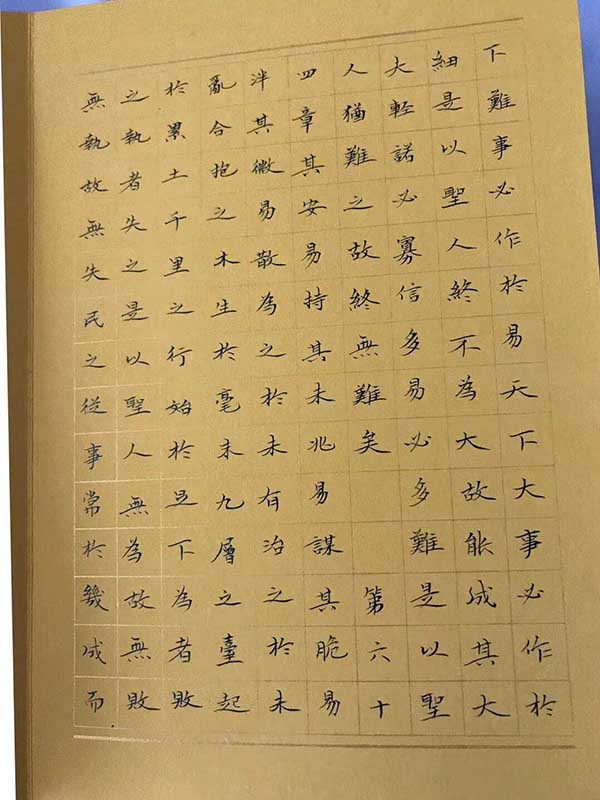 下難事必作於易天下大事必作於
細是以聖人終不為大故能成其大
大輕諾必寡信多易必多難是以聖
人猶難之故終無難矣 第六十
四章其安易持其未兆易謀其脆易
泮其微易散為之於未有治之於未
亂合抱之木生於毫末九層之臺起
於累土千里之行始於足下為者敗
之執者失之是以聖人無為故無敗
無執故無失民之從事常於幾成而